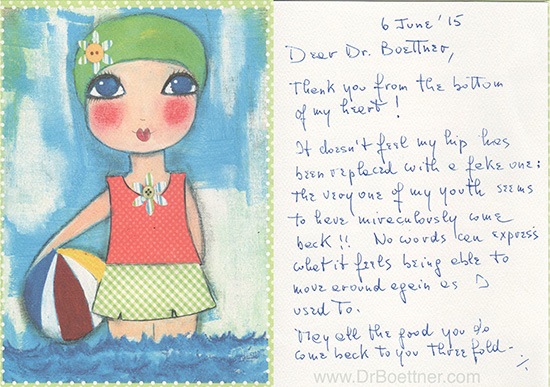 6 June '15
Dear Dr. Boettner,
Thank you from the bottom
of my heart!
It doesn't feel my hip has
been replaced with a fake one:
the very one of my youth seems
to have miraculously come
back!! No words can express
what it feels being able to
move around again as I
used to.
May all the good you do
come back to you threefold.
www.DrBoettner.com